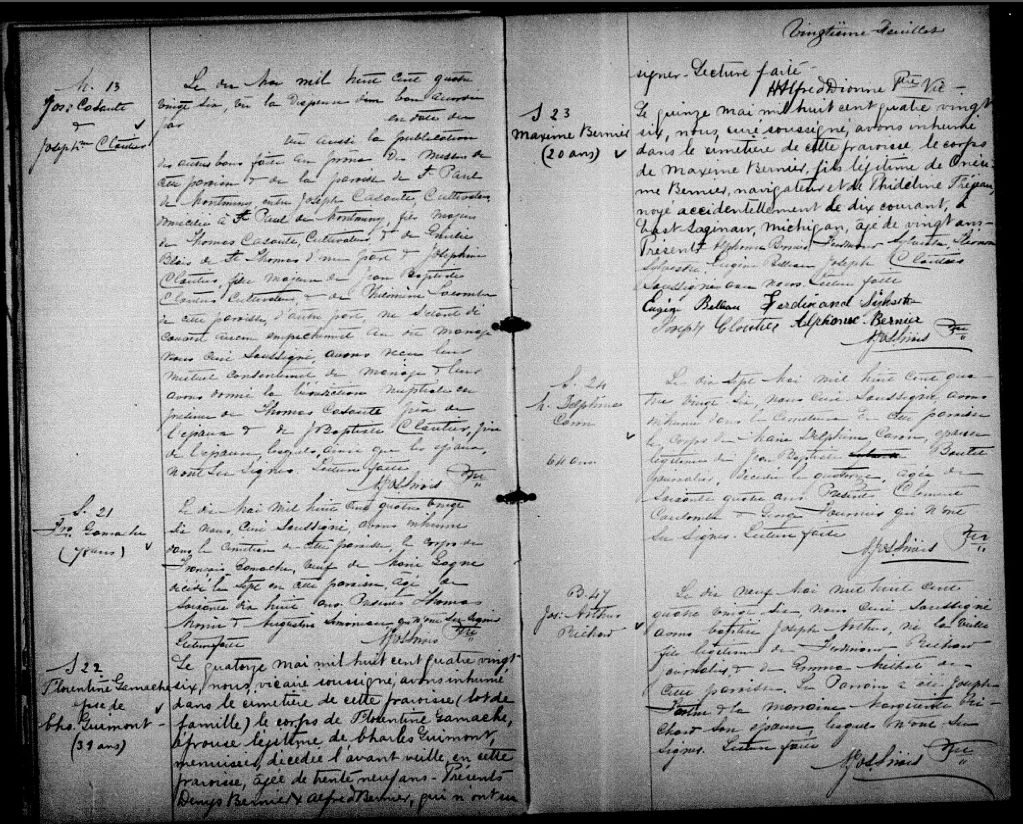 M. 13
Jos. Casaute
&
Josephine Cloutier
Le dix Mai mil huit cent quatre
vingt six, vu la dispense d'un ban
par en date du
vu aussi la publication
des autres bans faite au prône des Messes de
cette paroisse & de la paroisse de St Paul
de Montminy, entre Joseph Casaute, Cultivateur
domicilié à St Paul de Montminy, fils majeur
de Thomas Casaute, Cultivateur & de Emilie
Blais de St Thomas d'une part & Josephine
Cloutier, fille majeure de Jean Baptiste
Cloutier Cultivateur, & de Philomène
de cette paroisse, d'autre part, ne s'étant dé
couvert aucun empêchement au dit mariage
Nous Curé Soussigné, avons reçu leur
mutuel consentement de mariage & leur
avons donné la bénédiction nuptiale en
présence de Thomas Casaute père de
l'époux & de JBaptiste Cloutier, père
de l'épouse, lesquels, ainsi que les époux,
n'ont su signer. Lecture faite
Ptre
S. 21
Frs. Gamache
(78 ans)
Le dix Mai mil huit cent quatre vingt
six nous, Curé Soussigné, avons inhumé
dans le cimetière de cette paroisse, le corps de
François Gamache, veuf de Marie Gagné
décédé le sept en cette paroisse, âgé de
soixante dix huit ans. Présents Thomas
& Augustin Simoneau qui n'ont su signer
Lecture faite
Ptre
S 22
Florentine Gamache
pse de
Chs. Guimont
(39 ans)
Le quatorze mai mil huit cent quatre vingt-
six, nous, vicaire soussigné, avons inhumé
dans le cimetière de cette paroisse (lot de
famille) le corps de Florentine Gamache,
épouse légitime de Charles Guimont,
menuisier, décédée l'avant veille, en cette
paroisse, âgée de trente neuf ans - Présents
Denys Bernier & Alfred Bernier, qui n'ont su
Vingtième Feuillet
signer - Lecture faite -
HAlfred Dionne Ptre Vic -
S 23
Maxime Bernier
(20 ans)
Le quinze mai mil huit cent quatre vingt
six, nous, curé soussigné, avons inhumé
dans le cimetière de cette paroisse le corps
de Maxime Bernier, fils légitime de Onési-
me Bernier, navigateur et de Phideline
noyé accidentellement le dix courant, à
East-Saginaw, Michigan, âgé de vingt ans -
Présents Alphonse Bernier, Ferdinand Sylvestre,
Sylvestre, Eugène Belleau Joseph Cloutier
Soussignés avec nous. Lecture faite
Eugène Belleau Ferdinand Sylvestre
Joseph Cloutier Alphonse Bernier
Ptre
S. 24
M. Delphine
Caron
64 ans
Le dix sept Mai mil huit cent qua
tre vingt six, nous Curé Soussigné, avons
inhumé dans le Cimetière de cette paroisse
le corps de Marie Delphine Caron, épouse
légitime de Jean Baptiste
Journalier, décédée le quatorze, âgée de
soixante quatre ans Présents Clément
Coulombe & George Fournier qui n'ont
su signer. Lecture faite
Ptre
B. 47
Jos: Arthur
Richard
Le dix neuf Mai mil huit cent
quatre vingt six, nous Curé Soussigné
avons baptisé Joseph Arthur, né la veille
fils légitime de Ferdinand Richard
journalier, & de Emma de
cette paroisse. Le Parrain a été Joseph
& la marraine Marguerite Ri
chard son épouse, lesquels n'ont su
signer. Lecture faite
Ptre